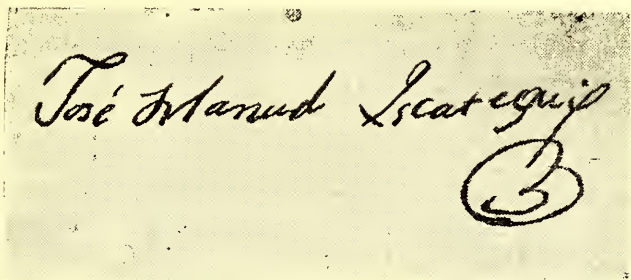 José Manuel Iscategui